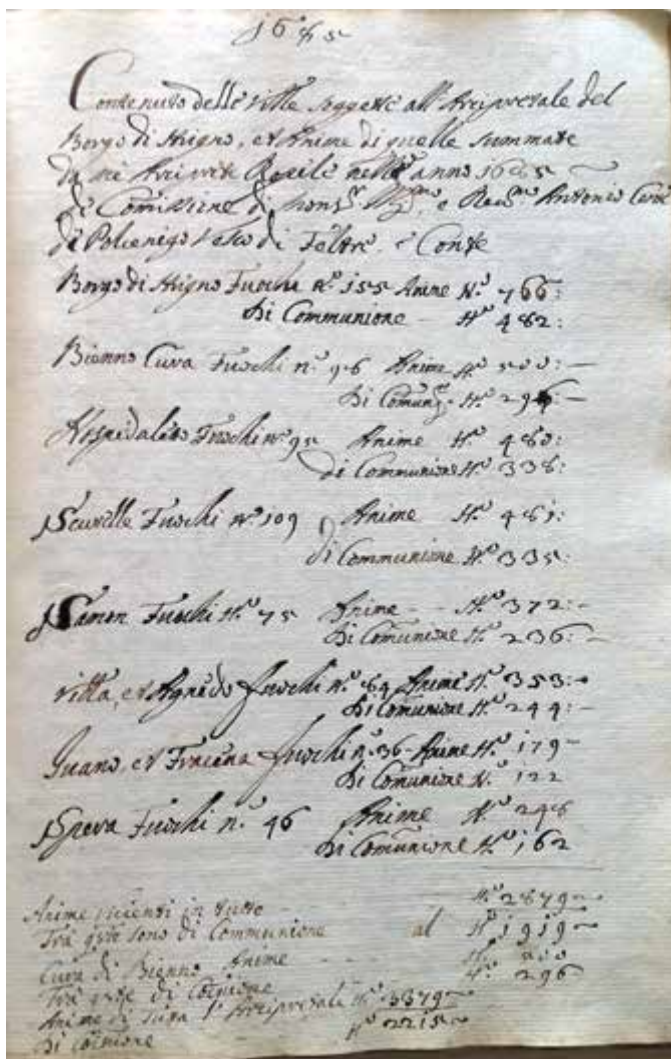 1685
Contenuto delle ville soggette all' Arcipretale del
Borgo di Strigno, et Anime di quelle summate
da mè Arciprete nell' anno 1685
di Comissione di Mons.r e Rev.mo Antonio
di Polcenigo Vesco di Feltre, e Conte
Borgo di Strigno Fuochi n.o 155 Anime N.o 766:
Di Communione N.o 482:
Bienno Cura Fuochi n.o 96 Anime N.o 500:
Di N.o 296:
Hospedaletto Fuochi n.o 95 Anime N.o 480:
di Communione N.o 338:
Scurelle Fuochi n.o 109 Anime N.o 481:
di Communione N.o 335:
Samon Fuochi N.o 75 Anime N.o 372:
Di Comunione N.o 236:
Villa, et Agnedo Fuochi n.o 64 Anime N.o 353:
Di Comunione N.o 244:
Iuano, et Fracena Fuochi n.o 36 Anime N.o 179
Di Comunione N.o 122
Spera Fuochi n.o 46 Anime N.o 248
Di Comunione N.o 162
Anime in tutto N.o 2879
Trà q.ste sono di Communione al N.o 1919
Cura di Bienno Anime N.o 500
Trà q.ste di N.o 296
Anime di tutta l' Arcipretale N.o 3379
Di N.o 2215